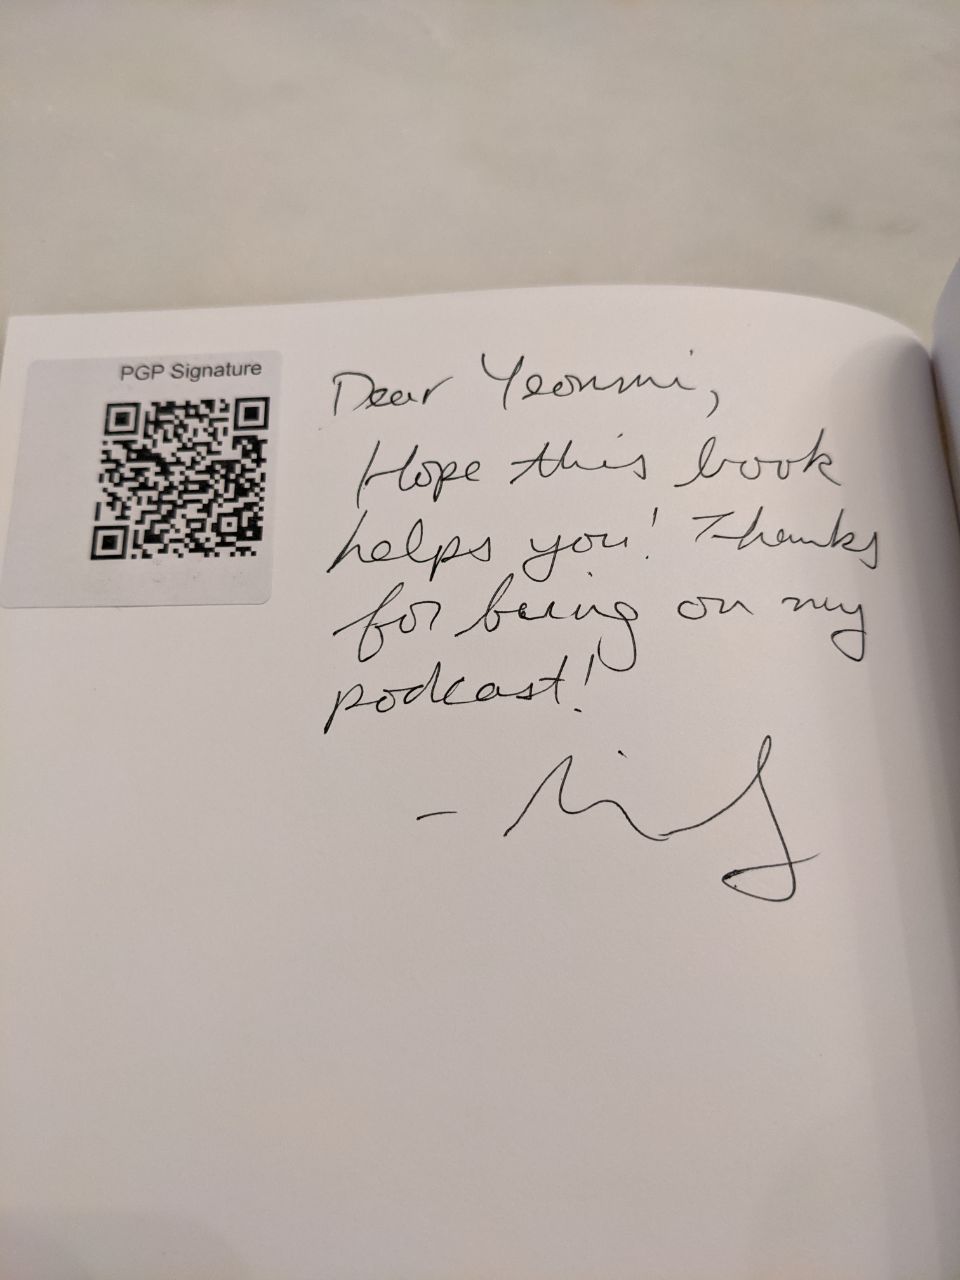 PGP Signature
Dear Yeonmi,
Hope this book
helps you! Thanks
for being on my
podcast!
-